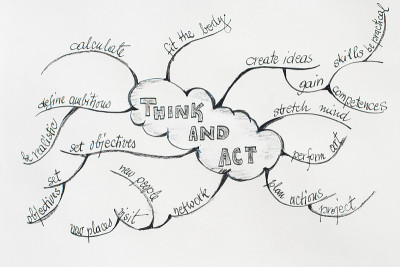 calculate
fit the body
create ideas
gain
skills
be practical
competences
stretch mind
perform art
plan actions
project
define ambitions
be realistic
set objectives
set
objectives
THINK
AND
ACT
network
visit
new people
new places